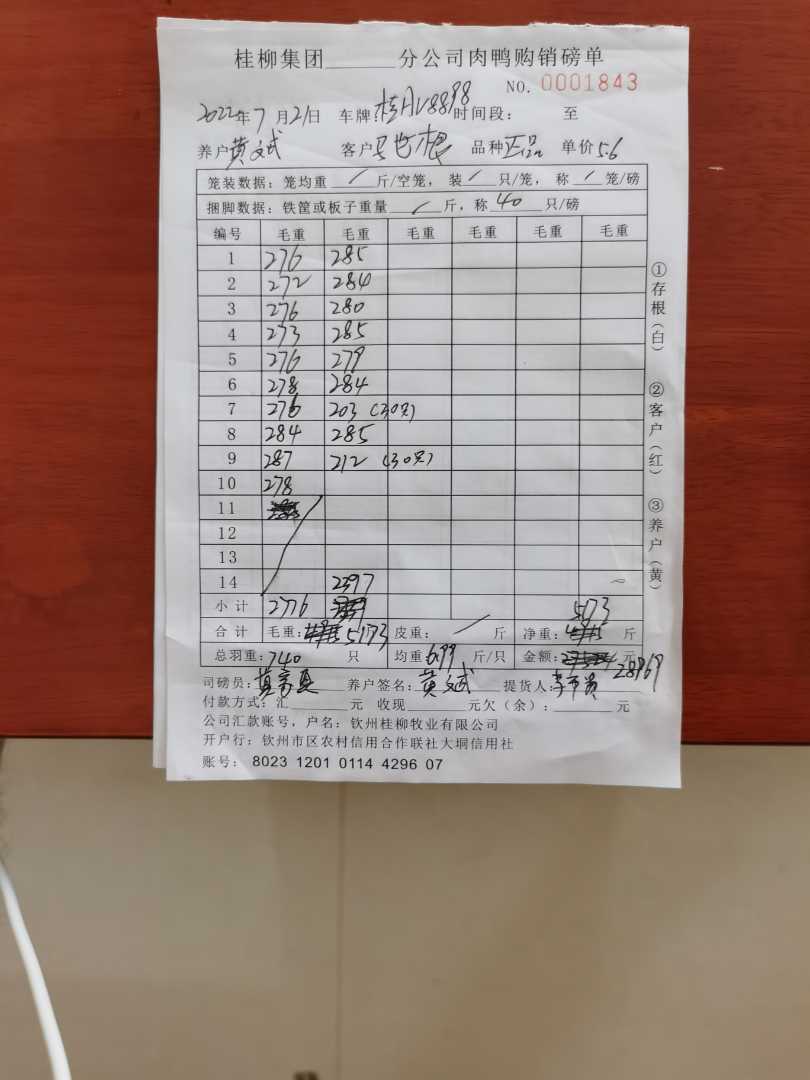 桂柳集团______分公司肉鸭购销磅单
NO. 0001843
2022年7月21日 车牌:桂AV8898时间段: 至
养户黄文斌 客户 世根 品种正品 单价5.6
笼装数据:笼均重 / 斤/空笼, 装 / 只/笼, 称 / 笼/磅
捆脚数据:铁筐或板子重量 / 斤,称 40 只/磅
编号 毛重 毛重 毛重 毛重 毛重 毛重
1 276 285
2 272 284
3 276 280
4 273 285
5 276 279
6 278 284
7 276 203 (30只)
8 284 285
9 287 212 (30只)
10 278
11
12
13
14 2397
小计 2776 5173
合计 毛重: 5173 皮重: / 斤 净重: 斤
总羽重:740 只 均重6.99 斤/只 金额: 元 28969
司磅员: 养户签名:黄文斌 提货人:
付款方式:汇______元 收现______元欠(余):______元
公司汇款账号,户名:钦州桂柳牧业有限公司
开户行:钦州市区农村信用合作联社大垌信用社
账号: 8023 1201 0114 4296 07
①存根(白)
②客户(红)
③养户(黄)